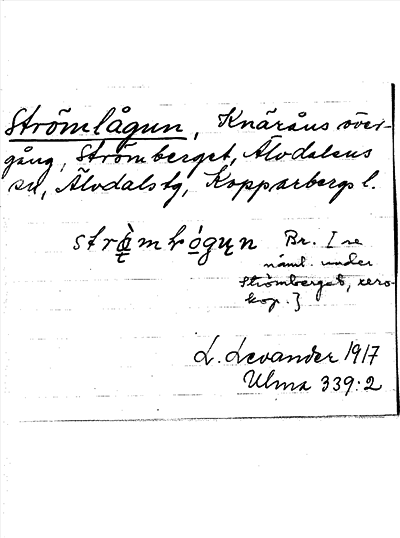 Strömlågun, Knäråns över-
gång, Strömberget, Älvdalens
sn, Älvdals tg, Kopparbergs l.
Br. [se
näml. under
Strömberget, xero-
kop.]
L. Levander 1917
Ulma 339:2